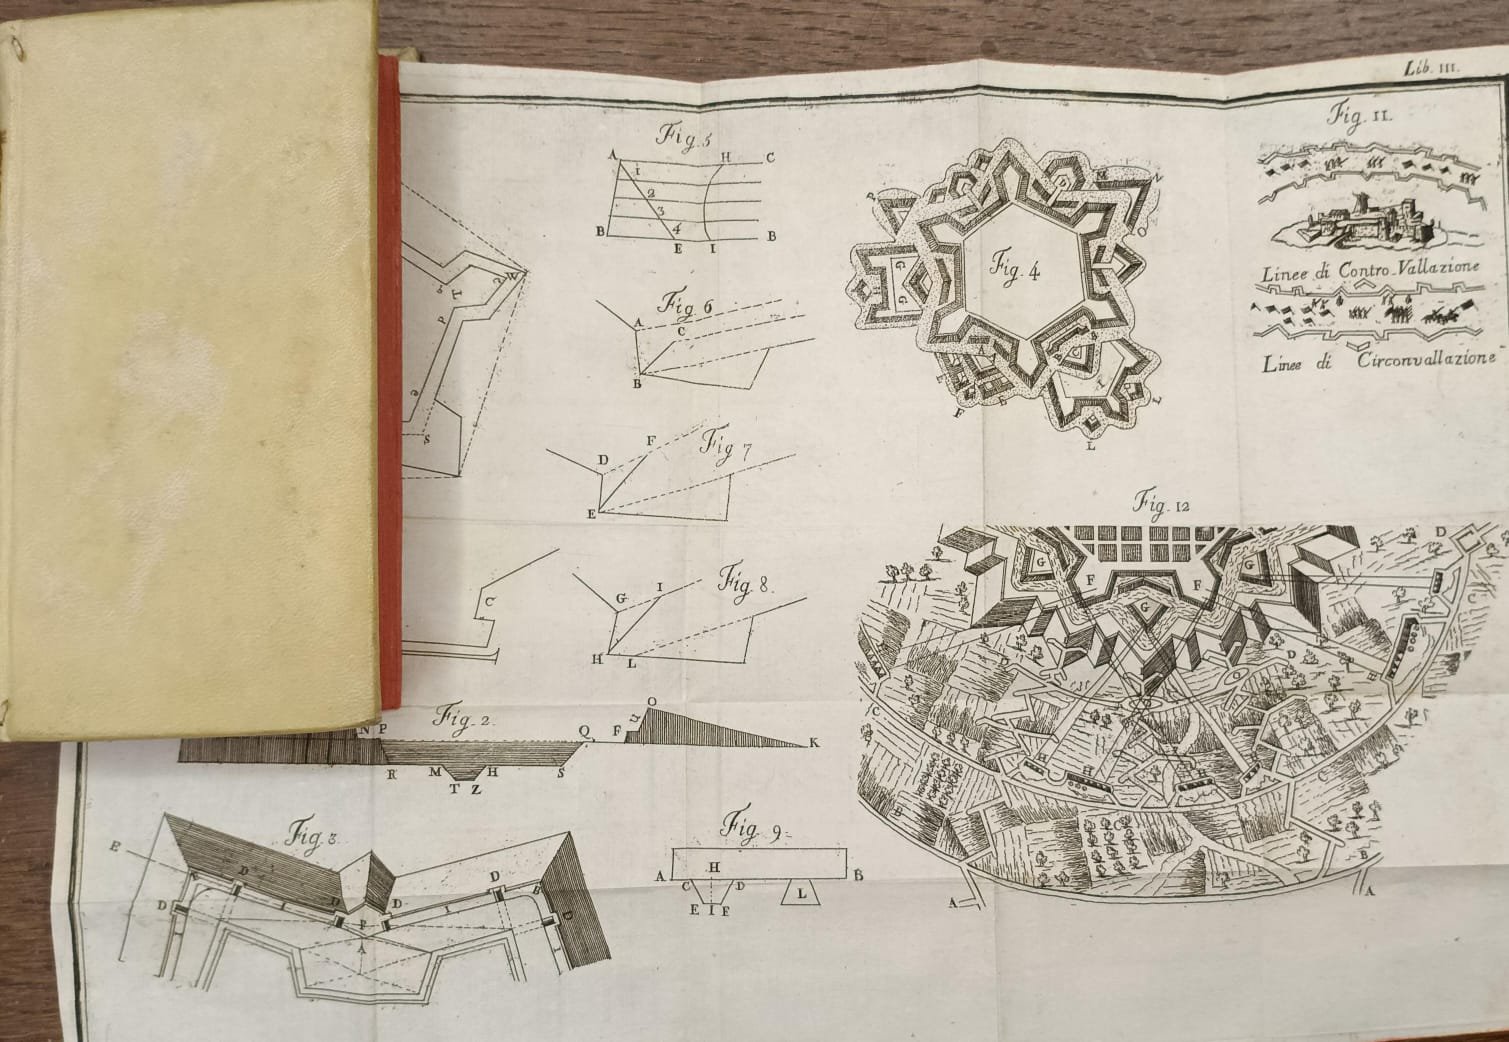 Lib. III.
Fig. 5
A H C
1
2
3
4
B E I B
Fig. 4
P M N
O
G
G
F L
L
Fig. 11.
Linee di Contro-Vallazione
Linee di Circonvallazione
Fig. 6
A
C
B
Fig. 7
D F
E
Fig. 8.
G I
H L
C
S
Fig. 2.
N P Q F O K
R M H S
T Z
Fig. 3.
E D D D D
D B D
P
A
Fig. 9.
A H B
C D L
E I F
Fig. 12
D
G G
F F
G
D D
H
C
H H H
C
B C B
A A